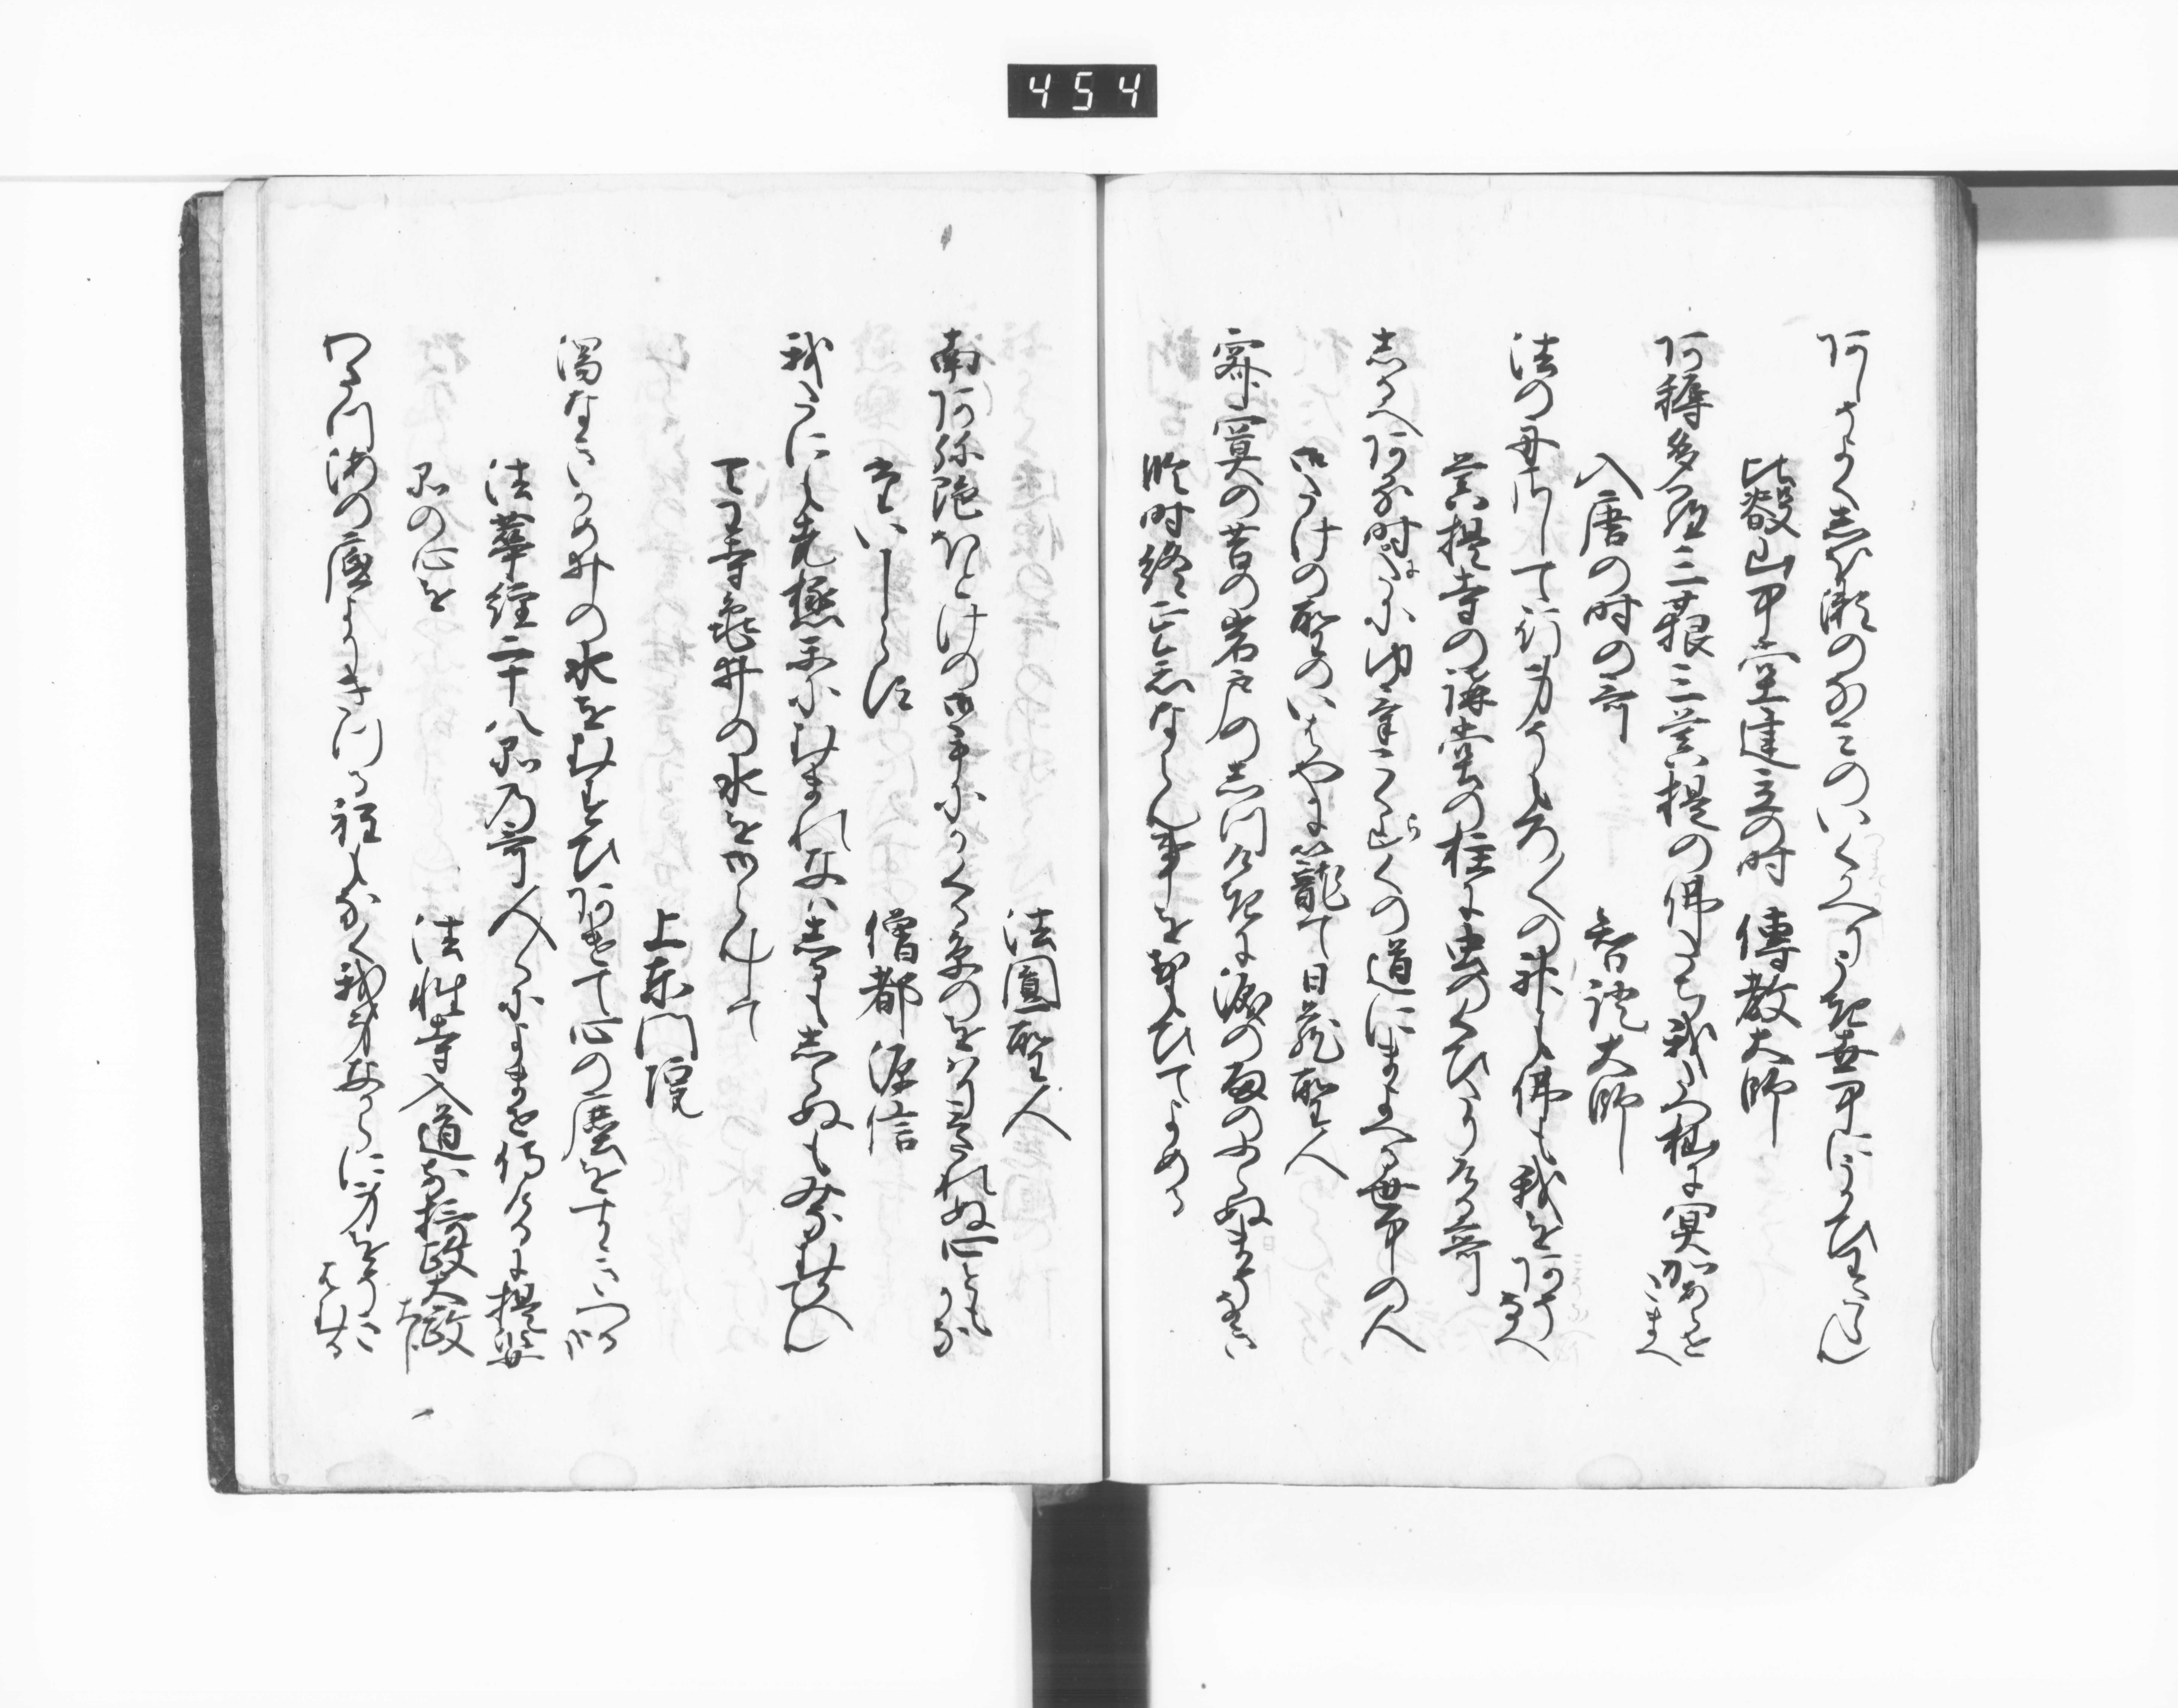 454
阿しそよくしほ瀬の浪のいくへうき世中にうかひわたらん
比叡山中堂建立の時 傳教大師
阿耨多羅三藐三菩提の佛たち我たつ杣に冥加あらせ
たまへ
入唐の時の哥 智證大師
法の舟さして行身そもろ〳〵の神も佛も我を
みそなへ
菩提寺の講堂の柱に虫のくひたりける哥
しるへある時にたにゆけこくらくの道にまよへる世中の人
みたけの聖のいはやに籠て 日蔵聖人
寂寞の苔の岩戸のしつけきに涙の雨のふらぬまそなき
臨時終正念ならん事を思ひてよめる
法圓聖人
南阿弥陀ほとけの御手にかくる糸のをはりみたれぬ心ともかな
題しらす 僧都源信
我たにもまつ極楽にむまれなはしるもしらぬもみなむかへてん
天王寺亀井の水を御らんして
上東門院
濁なきかめ井の水をむすひあけて心の塵をすゝきつるかな
法華經二十八品乃哥人〻によませ侍けるに提婆
品の心を 法性寺入道前摂政太政大臣
わたつ海の底よりきつる程もなく我身なからに身をそきはむる